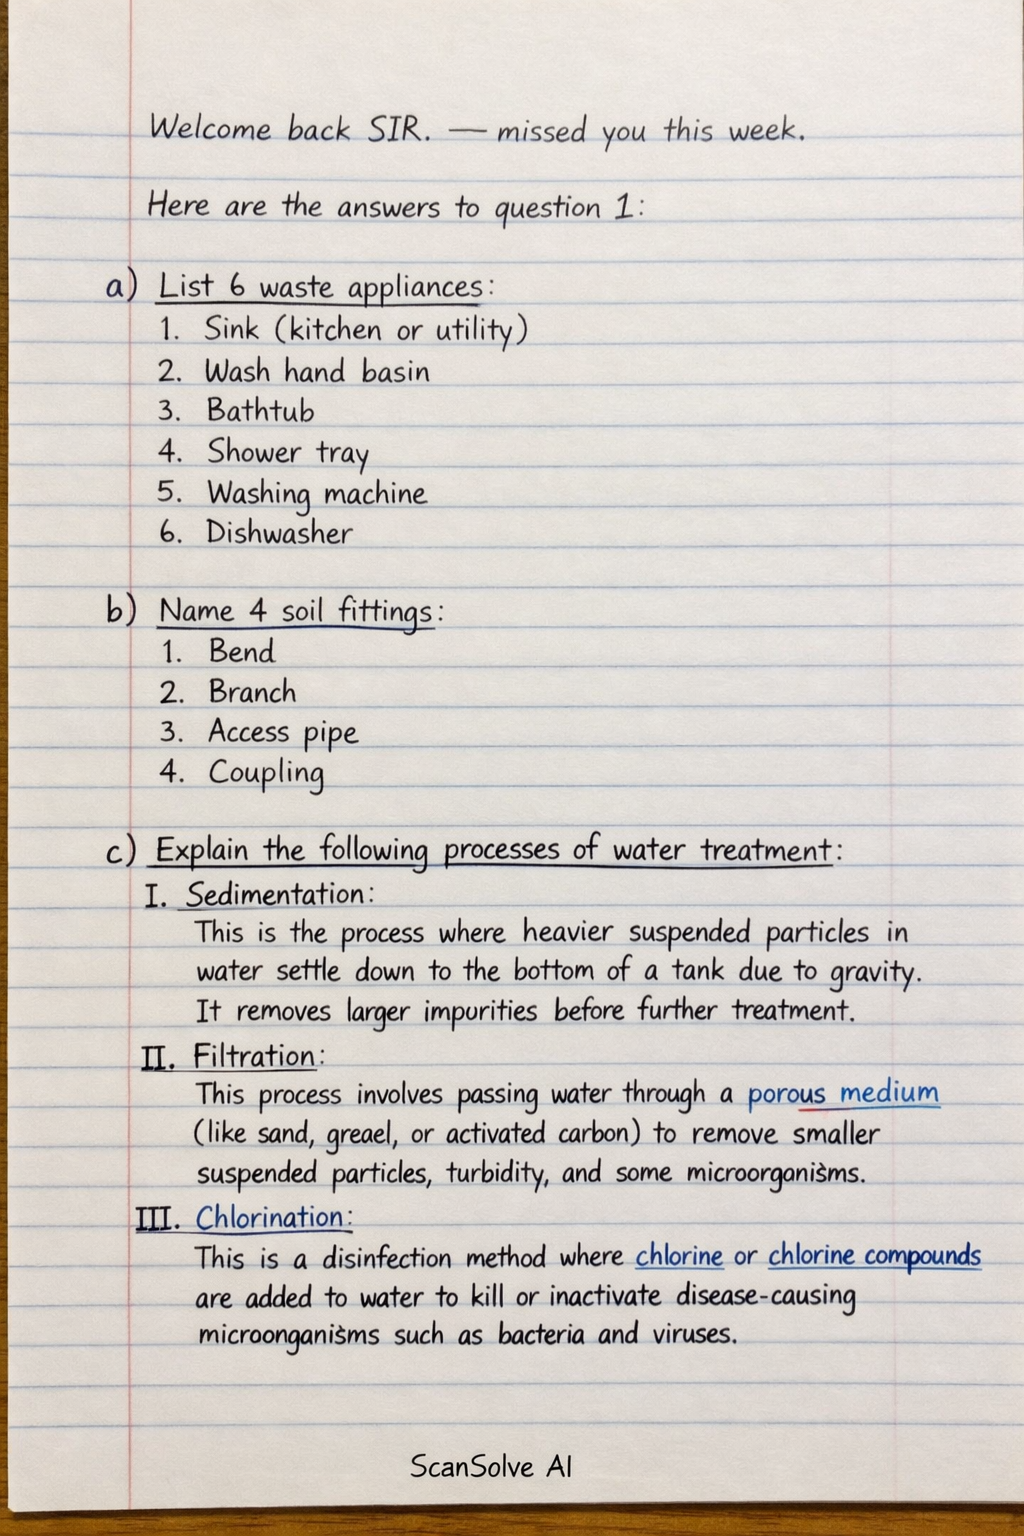 Welcome back SIR. — missed you this week.
Here are the answers to question 1:
a) List 6 waste appliances:
1. Sink (kitchen or utility)
2. Wash hand basin
3. Bathtub
4. Shower tray
5. Washing machine
6. Dishwasher
b) Name 4 soil fittings:
1. Bend
2. Branch
3. Access pipe
4. Coupling
c) Explain the following processes of water treatment:
I. Sedimentation:
This is the process where heavier suspended particles in
water settle down to the bottom of a tank due to gravity.
It removes larger impurities before further treatment.
II. Filtration:
This process involves passing water through a porous medium
(like sand, greael, or activated carbon) to remove smaller
suspended particles, turbidity, and some microorganisms.
III. Chlorination:
This is a disinfection method where chlorine or chlorine compounds
are added to water to kill or inactivate disease-causing
microonganisms such as bacteria and viruses.
ScanSolve AI